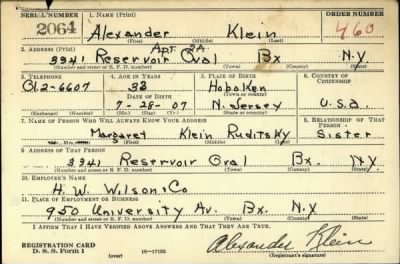 SERIAL NUMBER 1. NAME (Print) ORDER NUMBER
2064 Alexander Klein 460
(First) (Middle) (Last)
2. ADDRESS (Print) Apt. 2A
3341 Reservoir Oval Bx. N.Y
(Number and street or R. F. D. number) (Town) (County) (State)
3. TELEPHONE 4. AGE IN YEARS 5. PLACE OF BIRTH 6. COUNTRY OF CITIZENSHIP
Ol2-6607 33 Hoboken
DATE OF BIRTH (Town or county)
7-28-07 N. Jersey U.S.A.
(Exchange) (Number) (Mo.) (Day) (Yr.) (State or country)
7. NAME OF PERSON WHO WILL ALWAYS KNOW YOUR ADDRESS 8. RELATIONSHIP OF THAT PERSON
Margaret Klein Ruditsky Sister
(Mr., Mrs., Miss) (First) (Middle) (Last)
9. ADDRESS OF THAT PERSON
3341 Reservoir Oval Bx. N.Y.
(Number and street or R. F. D. number) (Town) (County) (State)
10. EMPLOYER'S NAME
H. W. Wilson & Co
11. PLACE OF EMPLOYMENT OR BUSINESS
950 University Av. Bx. N.Y
(Number and street or R. F. D. number) (Town) (County) (State)
I AFFIRM THAT I HAVE VERIFIED ABOVE ANSWERS AND THAT THEY ARE TRUE.
REGISTRATION CARD
D. S. S. Form 1 (over) 16-17105 Alexander Klein
(Registrant's signature)